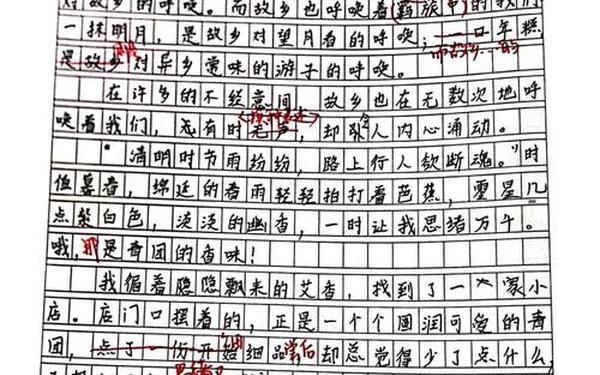 故乡对的呼唤。而故乡也呼唤着(羁旅中)的我们
一抹明月，是故乡对望月者的呼唤；一口年糕
而故乡…的
是故乡对异乡意味的游子的呼唤。
在许多的不经意间，故乡也在无数次地呼
唤着我们，无有时无声，却令人内心涌动。
“清明时节雨纷纷，路上行人欲断魂。”时
值暮春，绵延的春雨轻轻拍打着芭蕉，零星几
点柴白色，淡淡的幽香，一时让我思绪万千。
哦，那是青团的香味！
我循着隐隐飘来的艾香，找到了一家小
店。店门口摆着的，正是一个个圆润可爱的青
团，点了一份开始细品尝后却总觉得少了点什么，